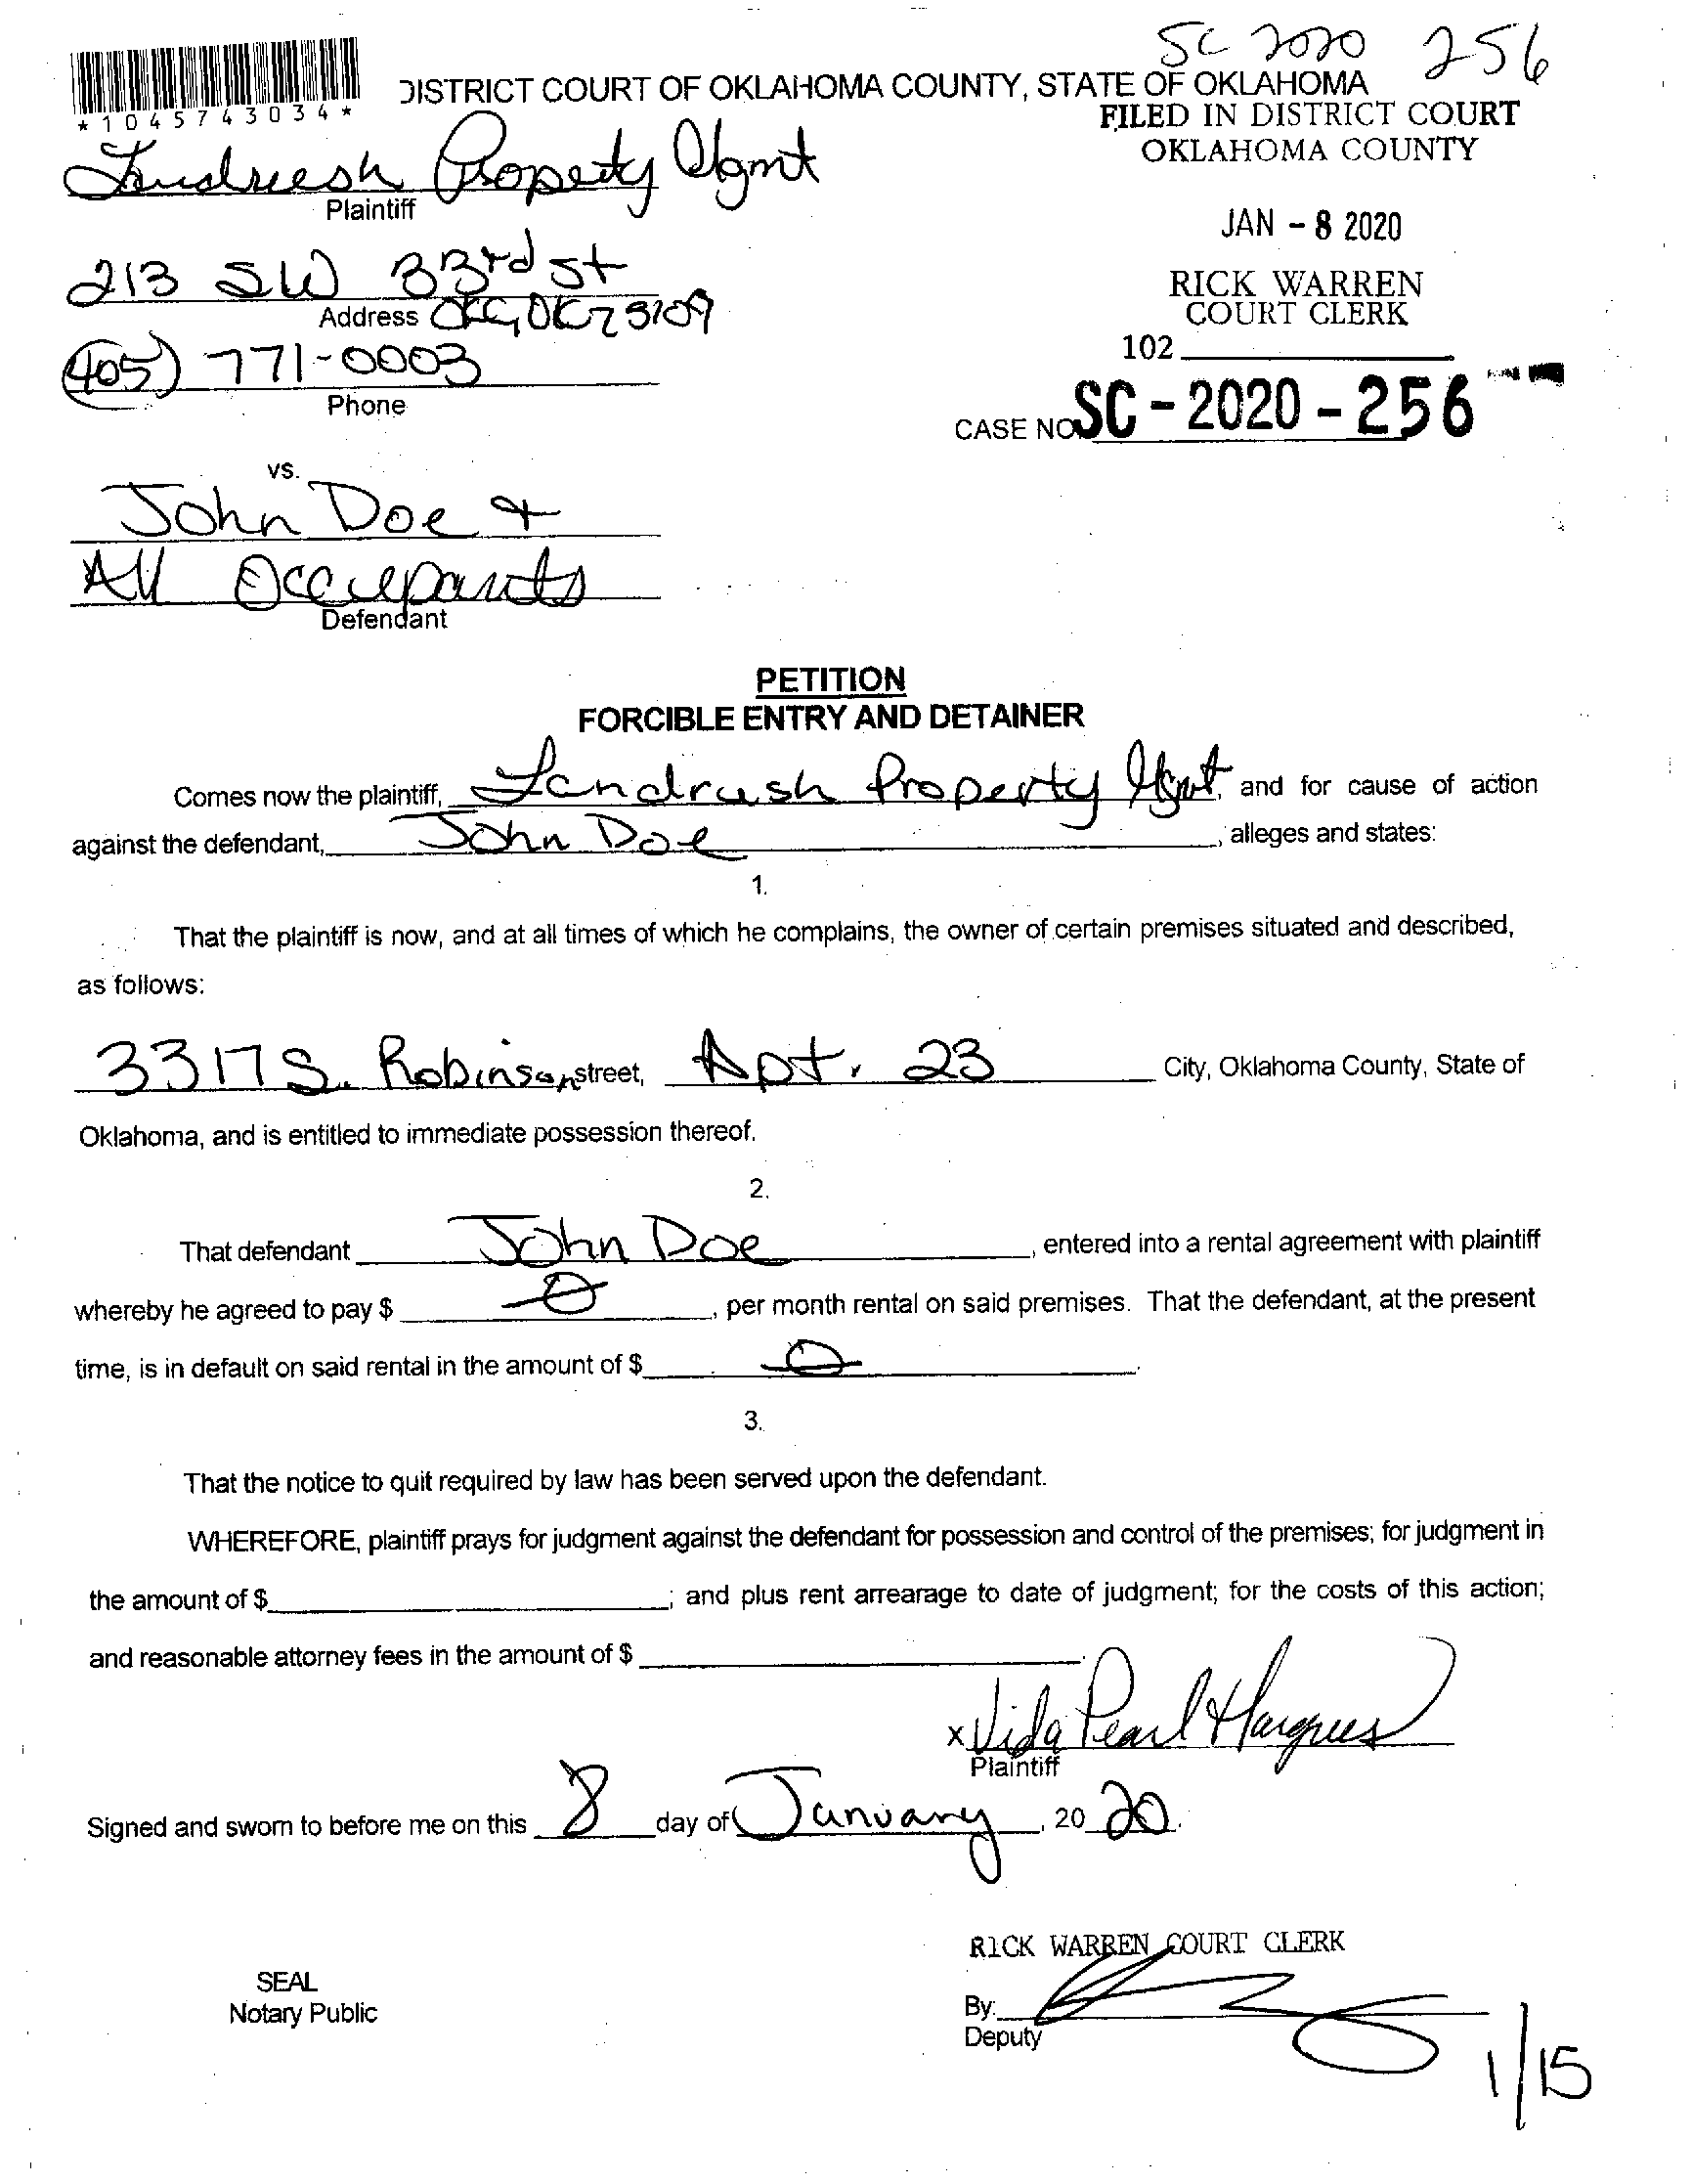 SC 2020 256
*1045743034*
DISTRICT COURT OF OKLAHOMA COUNTY, STATE OF OKLAHOMA
FILED IN DISTRICT COURT
OKLAHOMA COUNTY
Landrush Property Mgmt
Plaintiff
JAN - 8 2020
213 SW 33rd St
Address OKC, OK 73109
RICK WARREN
COURT CLERK
102
(405) 771-0003
Phone
CASE NO. SC - 2020 - 256
vs.
John Doe &
All Occupants
Defendant
PETITION
FORCIBLE ENTRY AND DETAINER
Comes now the plaintiff, Landrush Property Mgmt, and for cause of action
against the defendant, John Doe, alleges and states:
1.
That the plaintiff is now, and at all times of which he complains, the owner of certain premises situated and described,
as follows:
3317 S. Robinson street, Apt. 23 City, Oklahoma County, State of
Oklahoma, and is entitled to immediate possession thereof.
2.
That defendant John Doe, entered into a rental agreement with plaintiff
whereby he agreed to pay $ 0, per month rental on said premises. That the defendant, at the present
time, is in default on said rental in the amount of $ 0.
3.
That the notice to quit required by law has been served upon the defendant.
WHEREFORE, plaintiff prays for judgment against the defendant for possession and control of the premises; for judgment in
the amount of $ ; and plus rent arrearage to date of judgment; for the costs of this action;
and reasonable attorney fees in the amount of $ .
x Vida Pearl Hargues
Plaintiff
Signed and sworn to before me on this 8 day of January, 20 20.
RICK WARREN COURT CLERK
SEAL
Notary Public
By:
Deputy
1/15